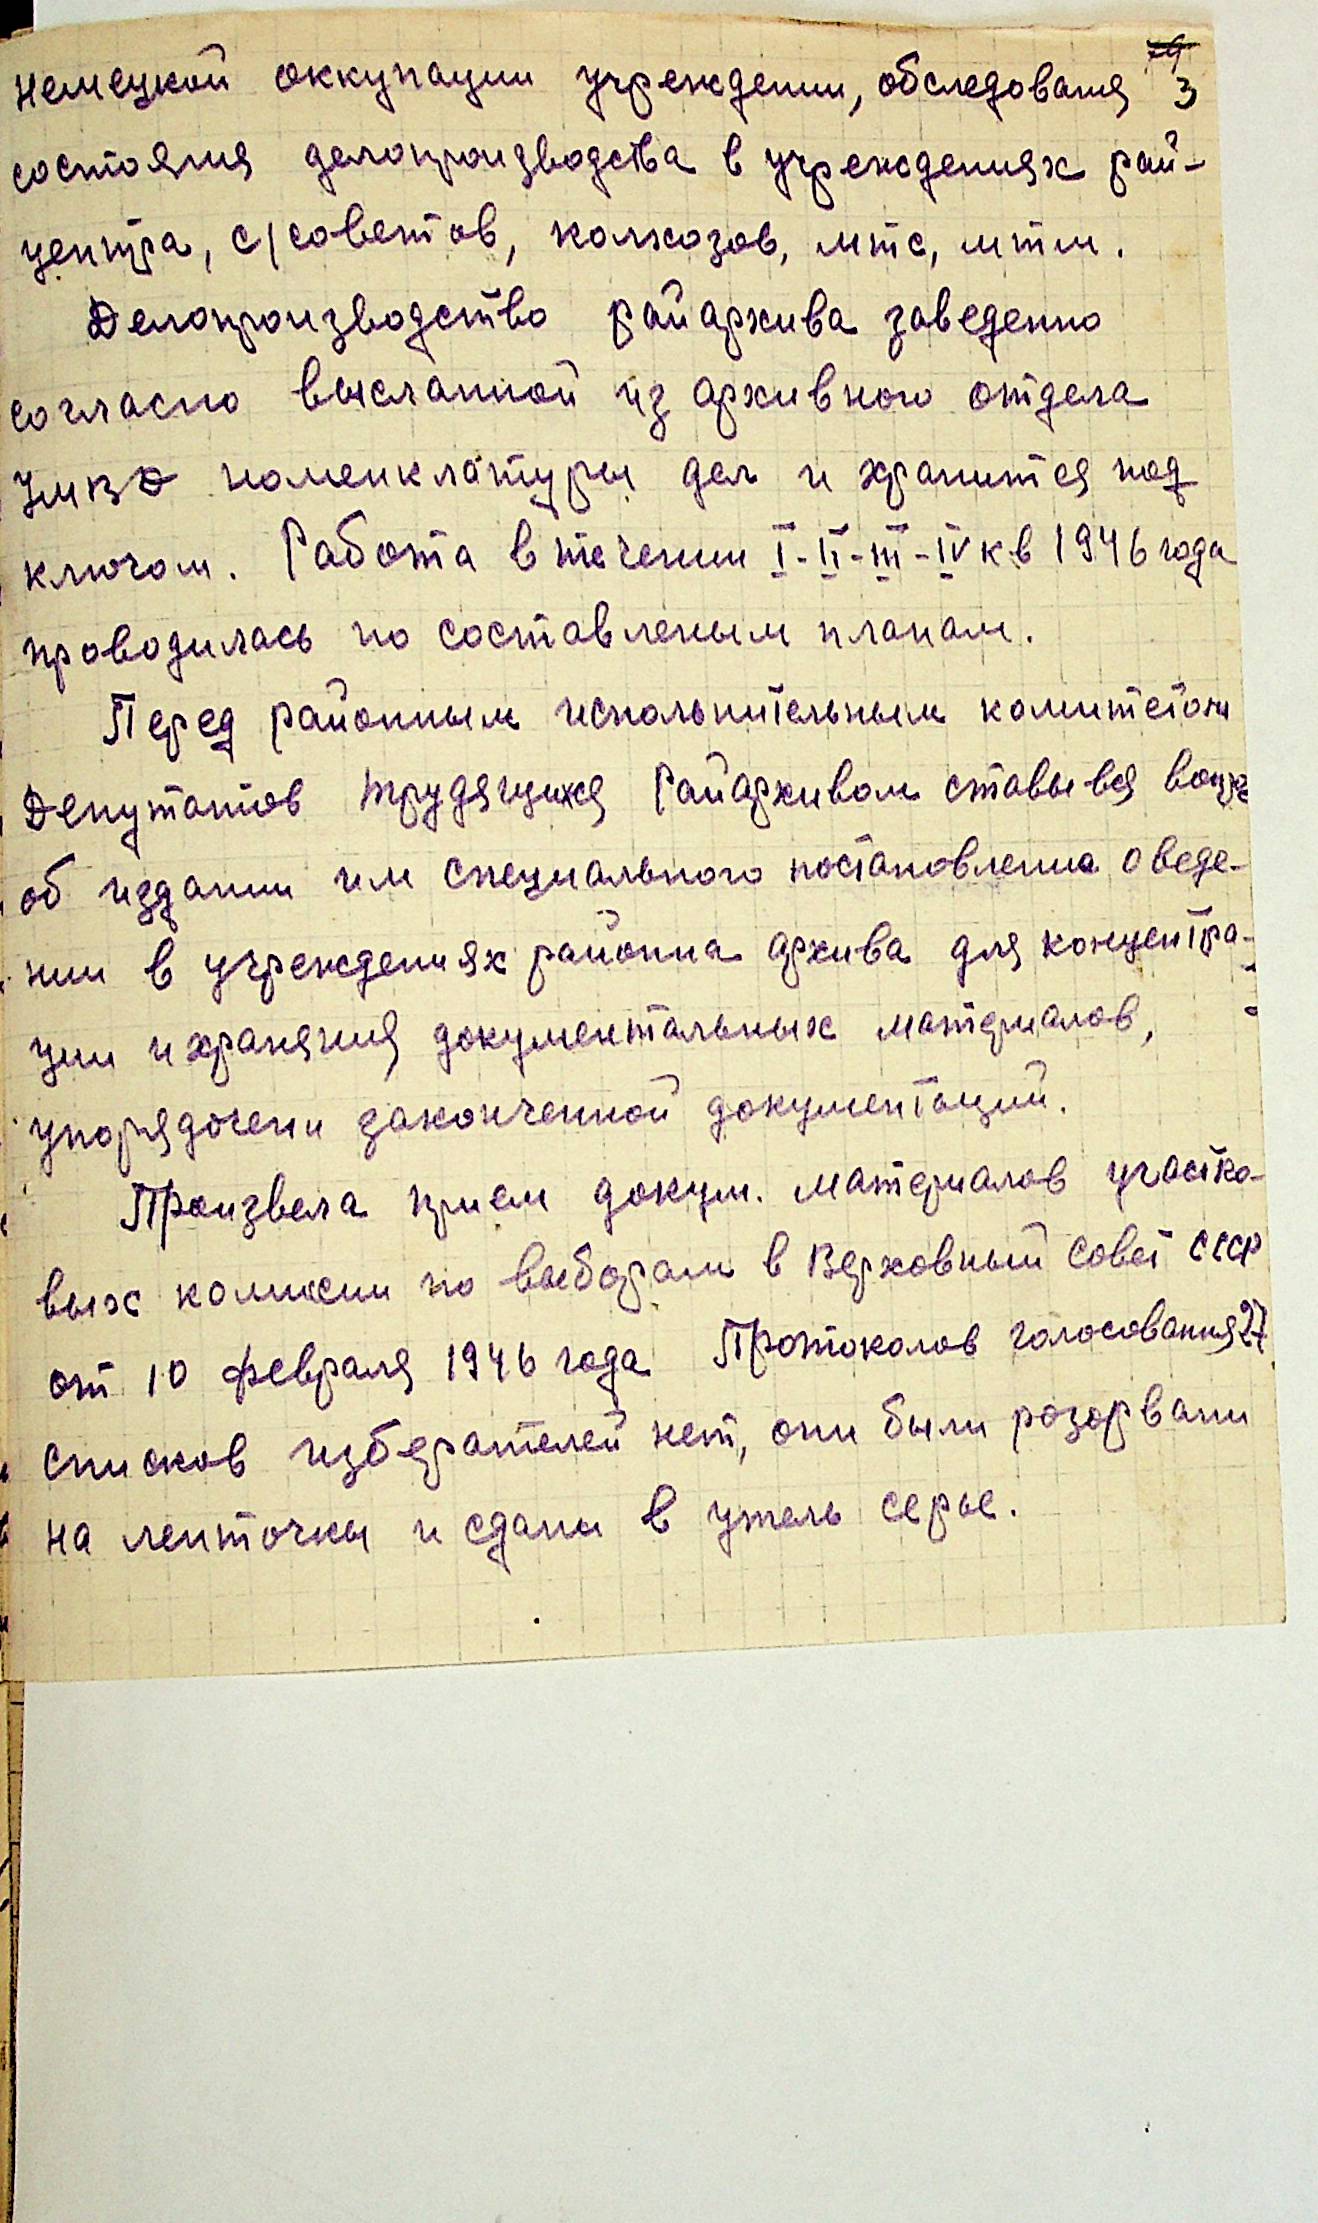 немецкой оккупации учреждении, обследования 3
состояния делопроизводства в учреждениях рай-
центра, с/советов, колхозов, мтс, мтм.
Делопроизводство райархива заведенно
согласно высланной из архивного отдела
УМВД номенклатуры дел и хранится под
ключом. Работа в течении I-II-III-IV кв 1946 года
проводилась по составленым планам.
Перед районным исполнительным комитетом
Депутатов трудящихся Райархивом ставывся
об издании им специального постановления о веде-
нии в учреждениях района архива для концентра-
ции и хранения документальных материалов,
упорядочени законченной документаций.
Произвела прием докум. материалов участко-
вых комиссии по выборам в Верховный Совет СССР
от 10 февраля 1946 года Протоколов голосования 27
списков избератeлей нет, они были розорвани
на ленточки и сдани в утель серье.